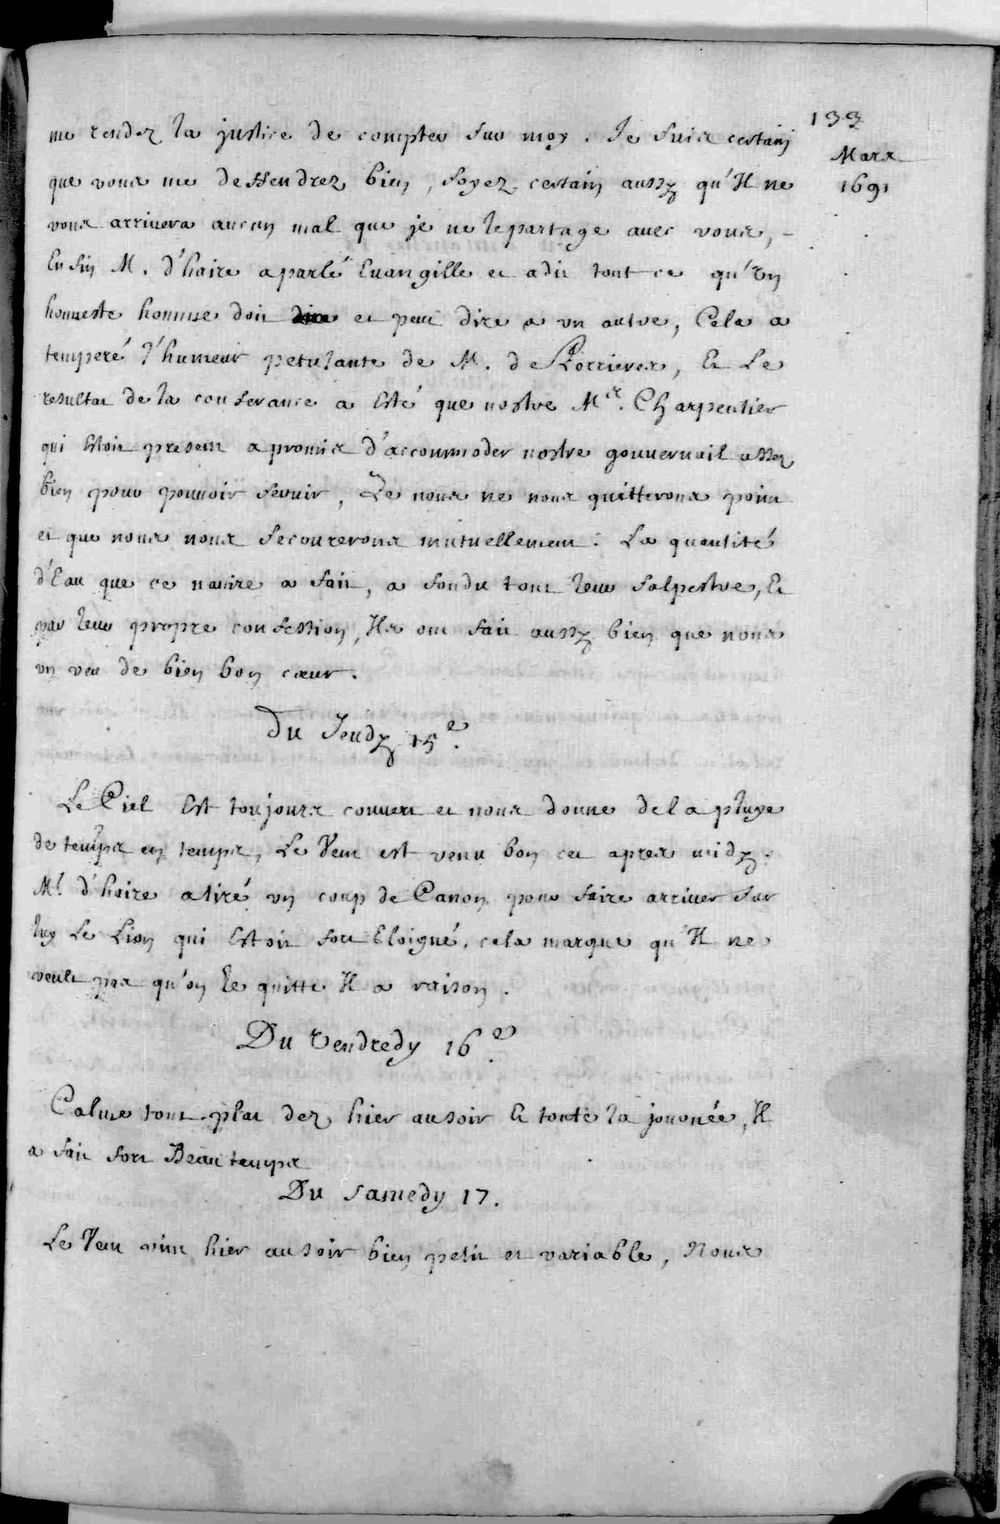 133
Mars
1691
me rendez la justice de compter sur moy. Je suis certain
que vous me deffendrez bien, soyez certain aussy qu'Il ne
vous arrivera aucun mal que je ne le partage avec vous, -
Enfin M. d'haire a parlé Evangille et a dit tout ce qu'Un
honneste homme doit et peut dire a un autre, Cela a
temperé l'humeur petulante de M. de Porrieres, Et Le
resultat de la conferance a Esté que nostre Mr. Charpentier
qui Estoit present a promis d'accommoder nostre gouvernail assez
bien pour pouvoir servir, Que nous ne nous quitterons point
et que nous nous secourerons mutuellement. La quantité
d'Eau que ce navire a fait, a fondu tout leur salpestre, Et
par leur propre confession, Ils ont fait aussy bien que nous
un veu de bien bon cœur.
Du Jeudy 15e.
Le Ciel Est toujours couvert et nous donne de la pluye
de temps en temps, Le Vent est venu bon cet apres midy.
Mr. d'haire a tiré un coup de Canon pour faire arriver sur
luy Le Lion qui Estoit fort Eloigné, cela marque qu'Il ne
veult pas qu'on le quitte Il a raison.
Du Vendredy 16e.
Calme tout plat dez hier au soir Et toute la journée, Il
a fait fort Beau temps
Du Samedy 17.
Le Vent vint hier au soir bien petit et variable, Nous